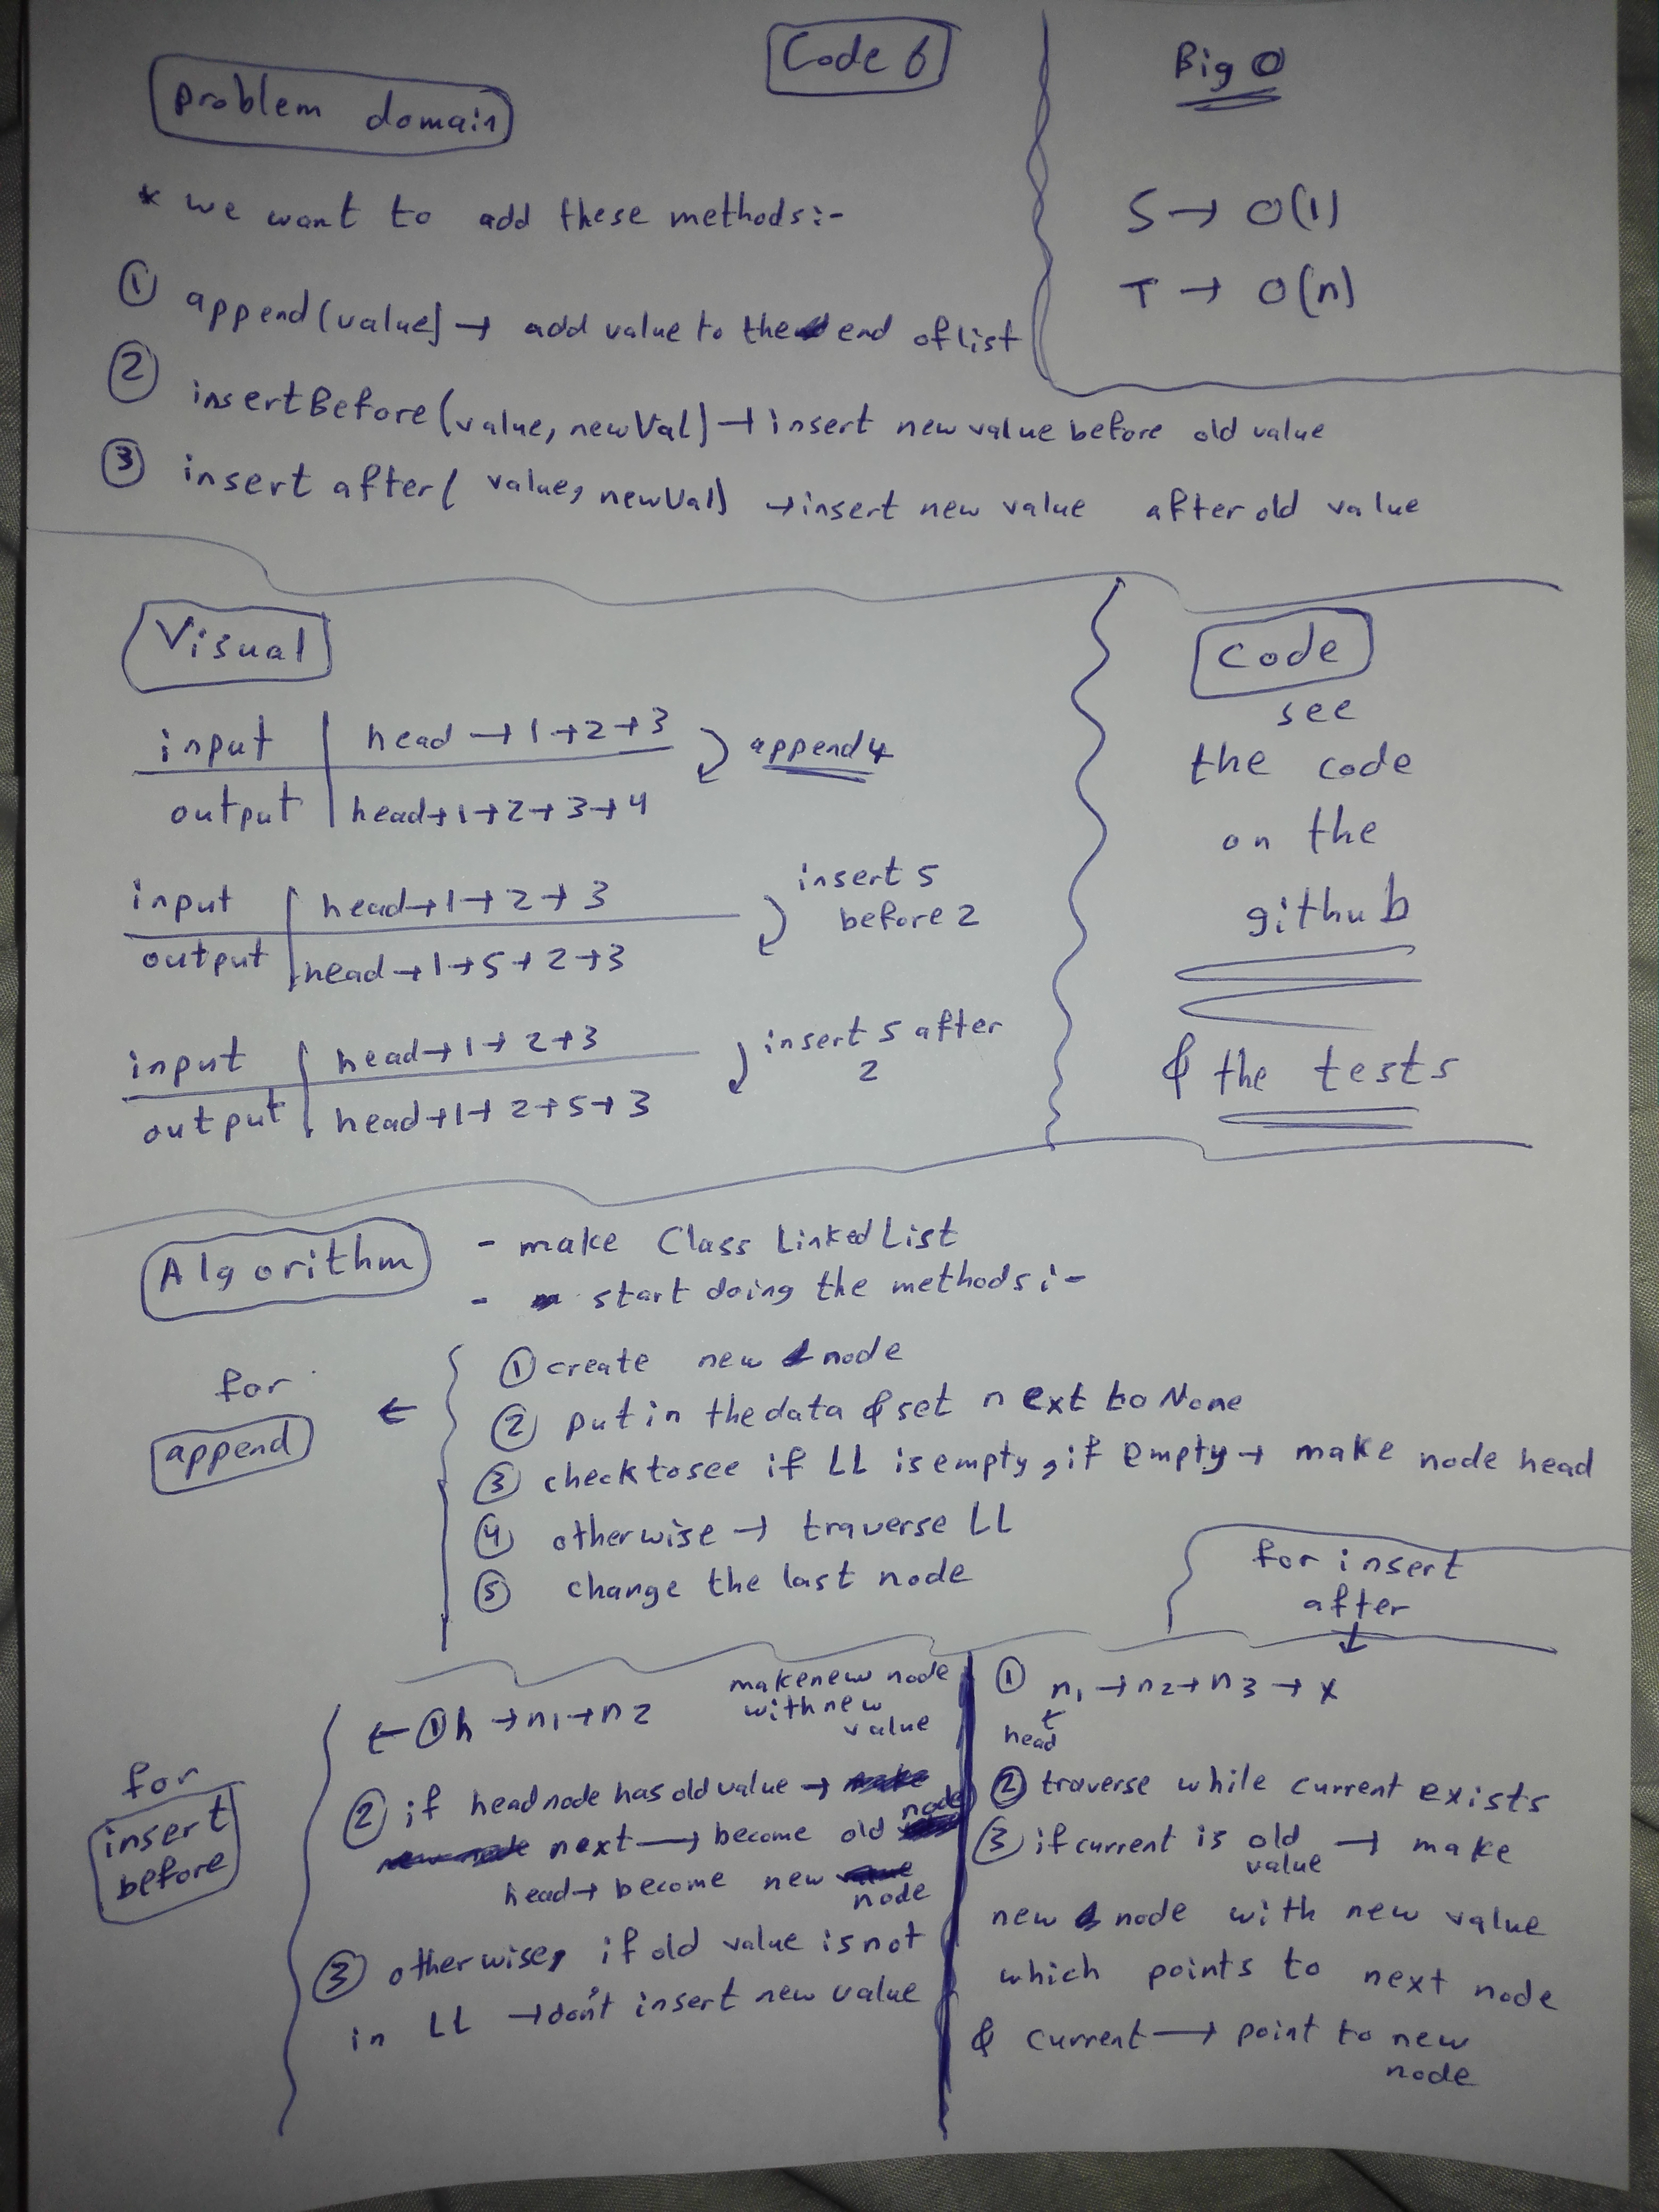 Code 6
Problem domain
* we want to add these methods:-
① append(value) → add value to the end of list
② insertBefore(value, newVal) → insert new value before old value
③ insert after( value, newVal) → insert new value after old value
Big O
S → O(1)
T → O(n)
Visual
input | head → 1 → 2 → 3
append 4
output | head → 1 → 2 → 3 → 4
input | head → 1 → 2 → 3
insert 5
before 2
output | head → 1 → 5 → 2 → 3
input | head → 1 → 2 → 3
insert 5 after
2
output | head → 1 → 2 → 5 → 3
Code
see
the code
on the
github
& the tests
Algorithm
- make Class Linked List
- start doing the methods:-
for
append
① create new node
② put in the data & set next to None
③ check to see if LL is empty, if empty → make node head
④ otherwise → traverse LL
⑤ change the last node
for
insert
before
← ① h → n1 → n2
make new node
with new
value
② if head node has old value →
next → become old node
head → become new
node
③ otherwise, if old value is not
in LL → don't insert new value
for insert
after
↓
① n1 → n2 → n3 → x
head
② traverse while current exists
③ if current is old value → make
new node with new value
which points to next node
& current → point to new
node